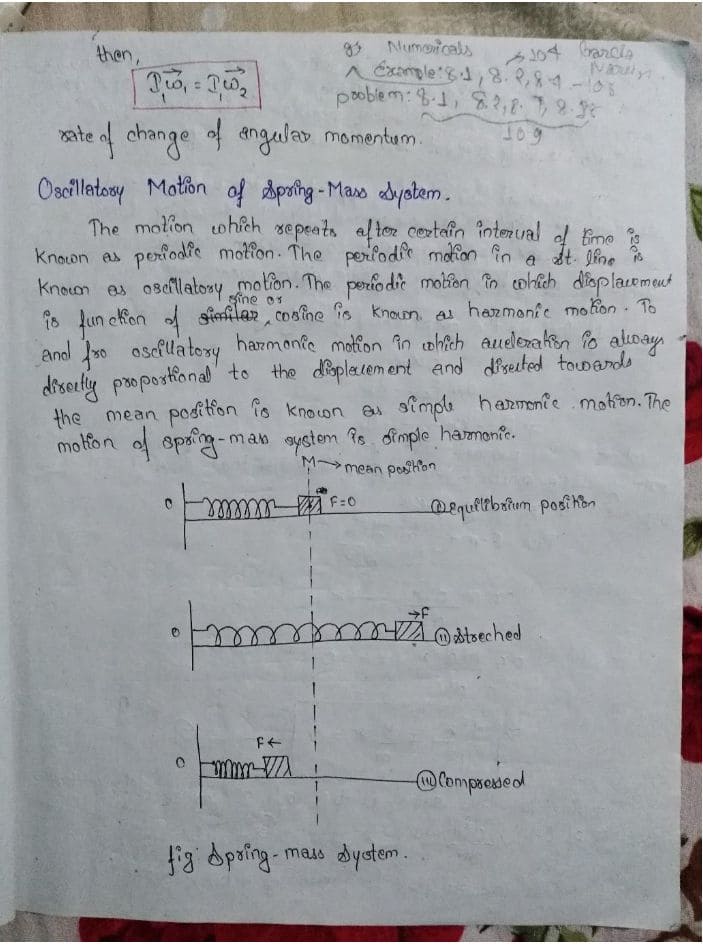 then,
I₁ω₁ = I₂ω₂
Numericals → 104 Garcia
Example: 8.1, 8.2, 8.4 - 108
problem: 8.1, 8.2, 8.7, 8.98
109
rate of change of angular momentum.
Oscillatory Motion of Spring-Mass System.
The motion which repeats after certain interval of time is
known as periodic motion. The periodic motion in a st. line is
known as oscillatory motion. The periodic motion in which displacement
is function of sine or cosine is known as harmonic motion. To
and fro oscillatory harmonic motion in which accleration is always
directly proportional to the displacement and directed towards
the mean position is known as simple harmonic motion. The
motion of spring-mass system is simple harmonic.
M→mean position
O F=0 ⓘ equilibrium position
O →F ⓘⓘ Streched
O F← ⓘⓘⓘ Compressed
fig: Spring-mass System.